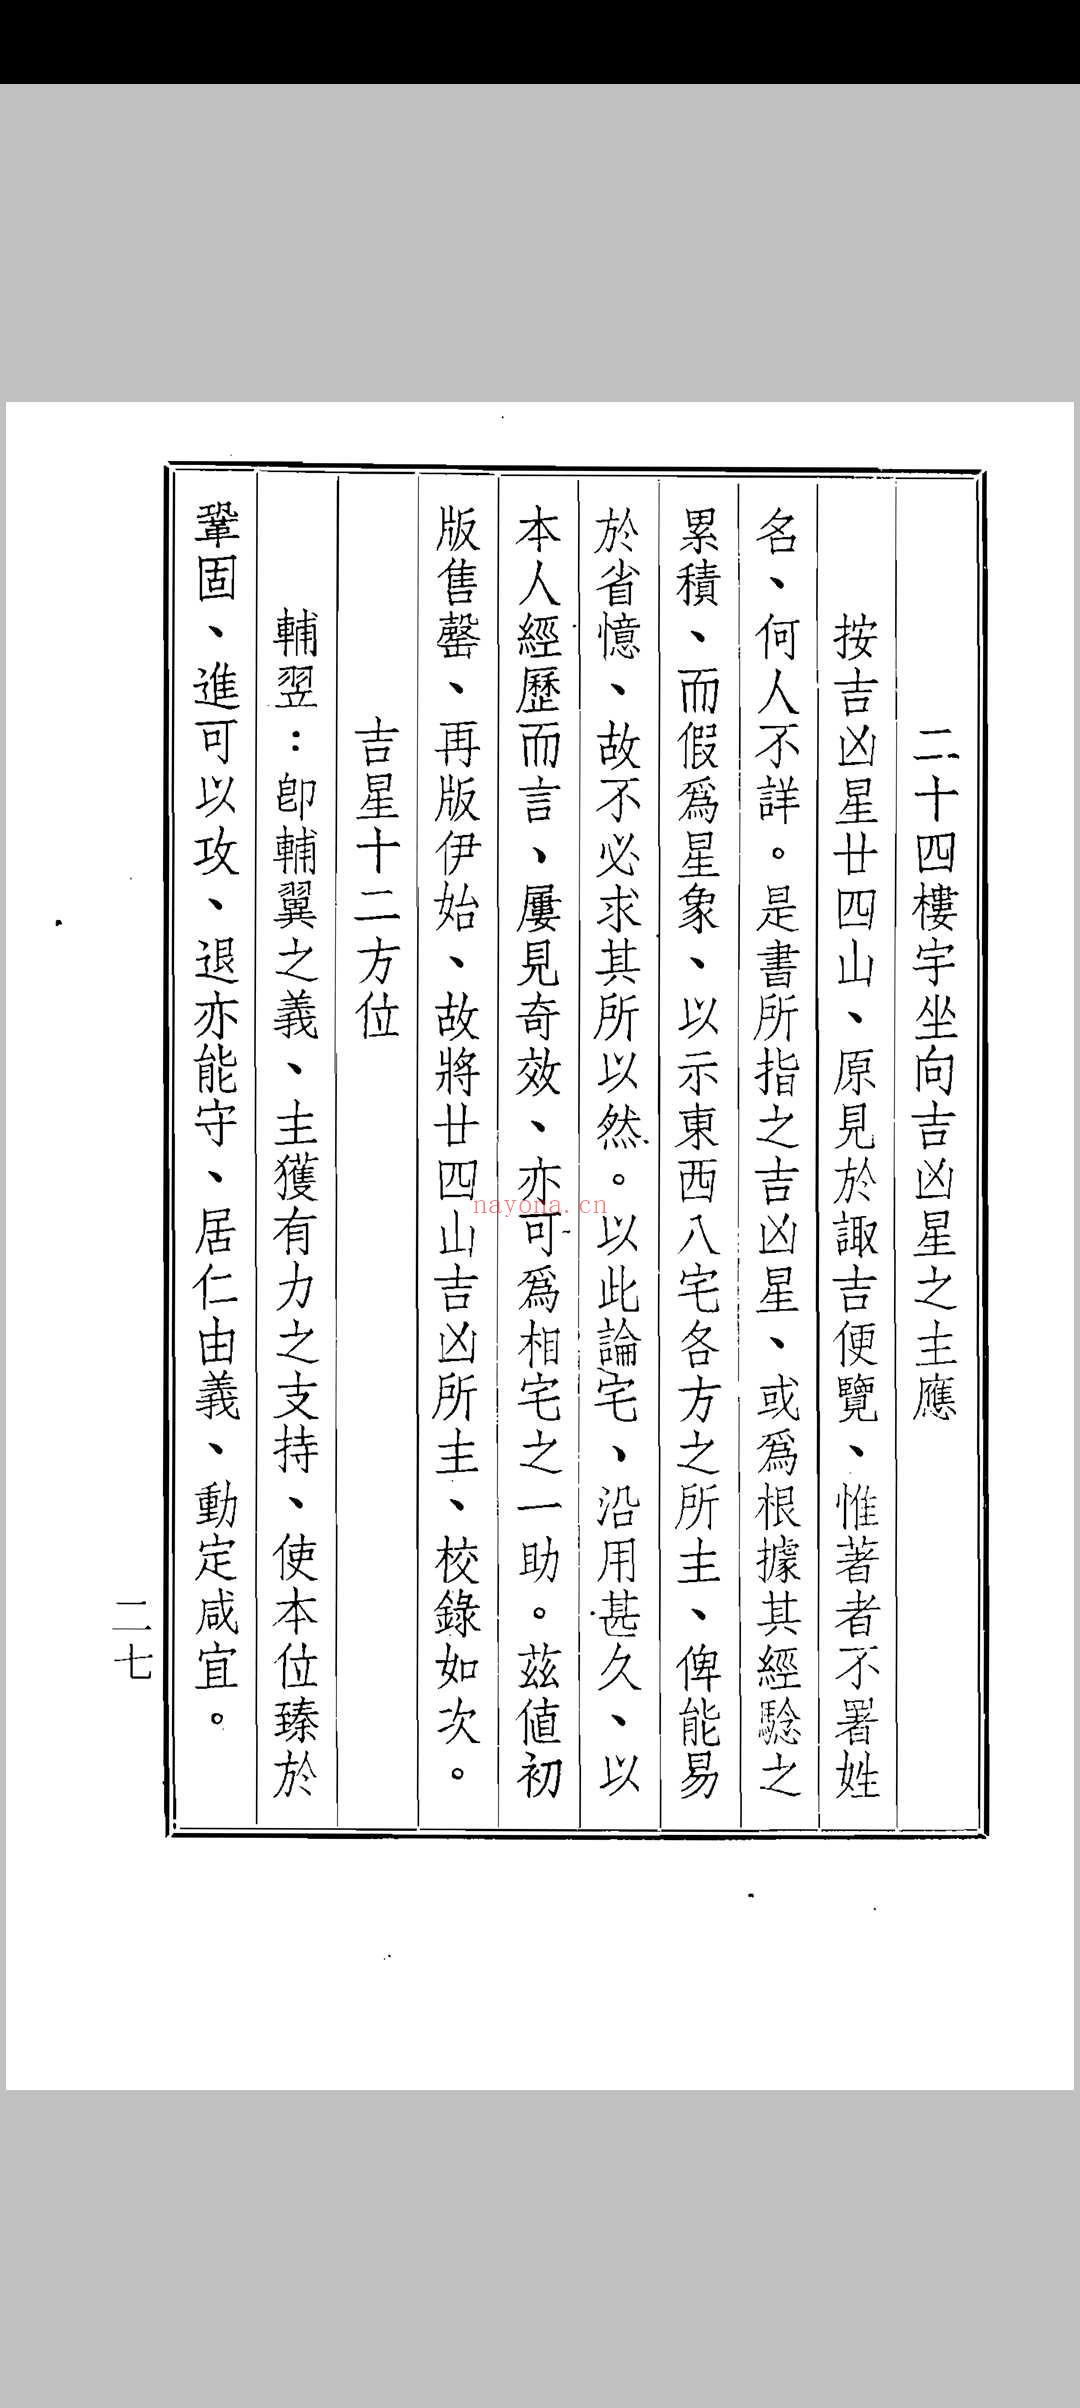 二十四樓宇坐向吉凶星之主應
按吉凶星廿四山、原見於諏吉便覽、惟著者不署姓
名、何人不詳。是書所指之吉凶星、或爲根據其經驗之
累積、而假爲星象、以示東西八宅各方之所主、俾能易
於省憶、故不必求其所以然。以此論宅、沿用甚久、以
本人經歷而言、屢見奇效、亦可爲相宅之一助。茲值初
版售罄、再版伊始、故將廿四山吉凶所主、校錄如次。
吉星十二方位
輔翌：卽輔翼之義、主獲有力之支持、使本位臻於
鞏固、進可以攻、退亦能守、居仁由義、動定咸宜。
二七
nayona.cn